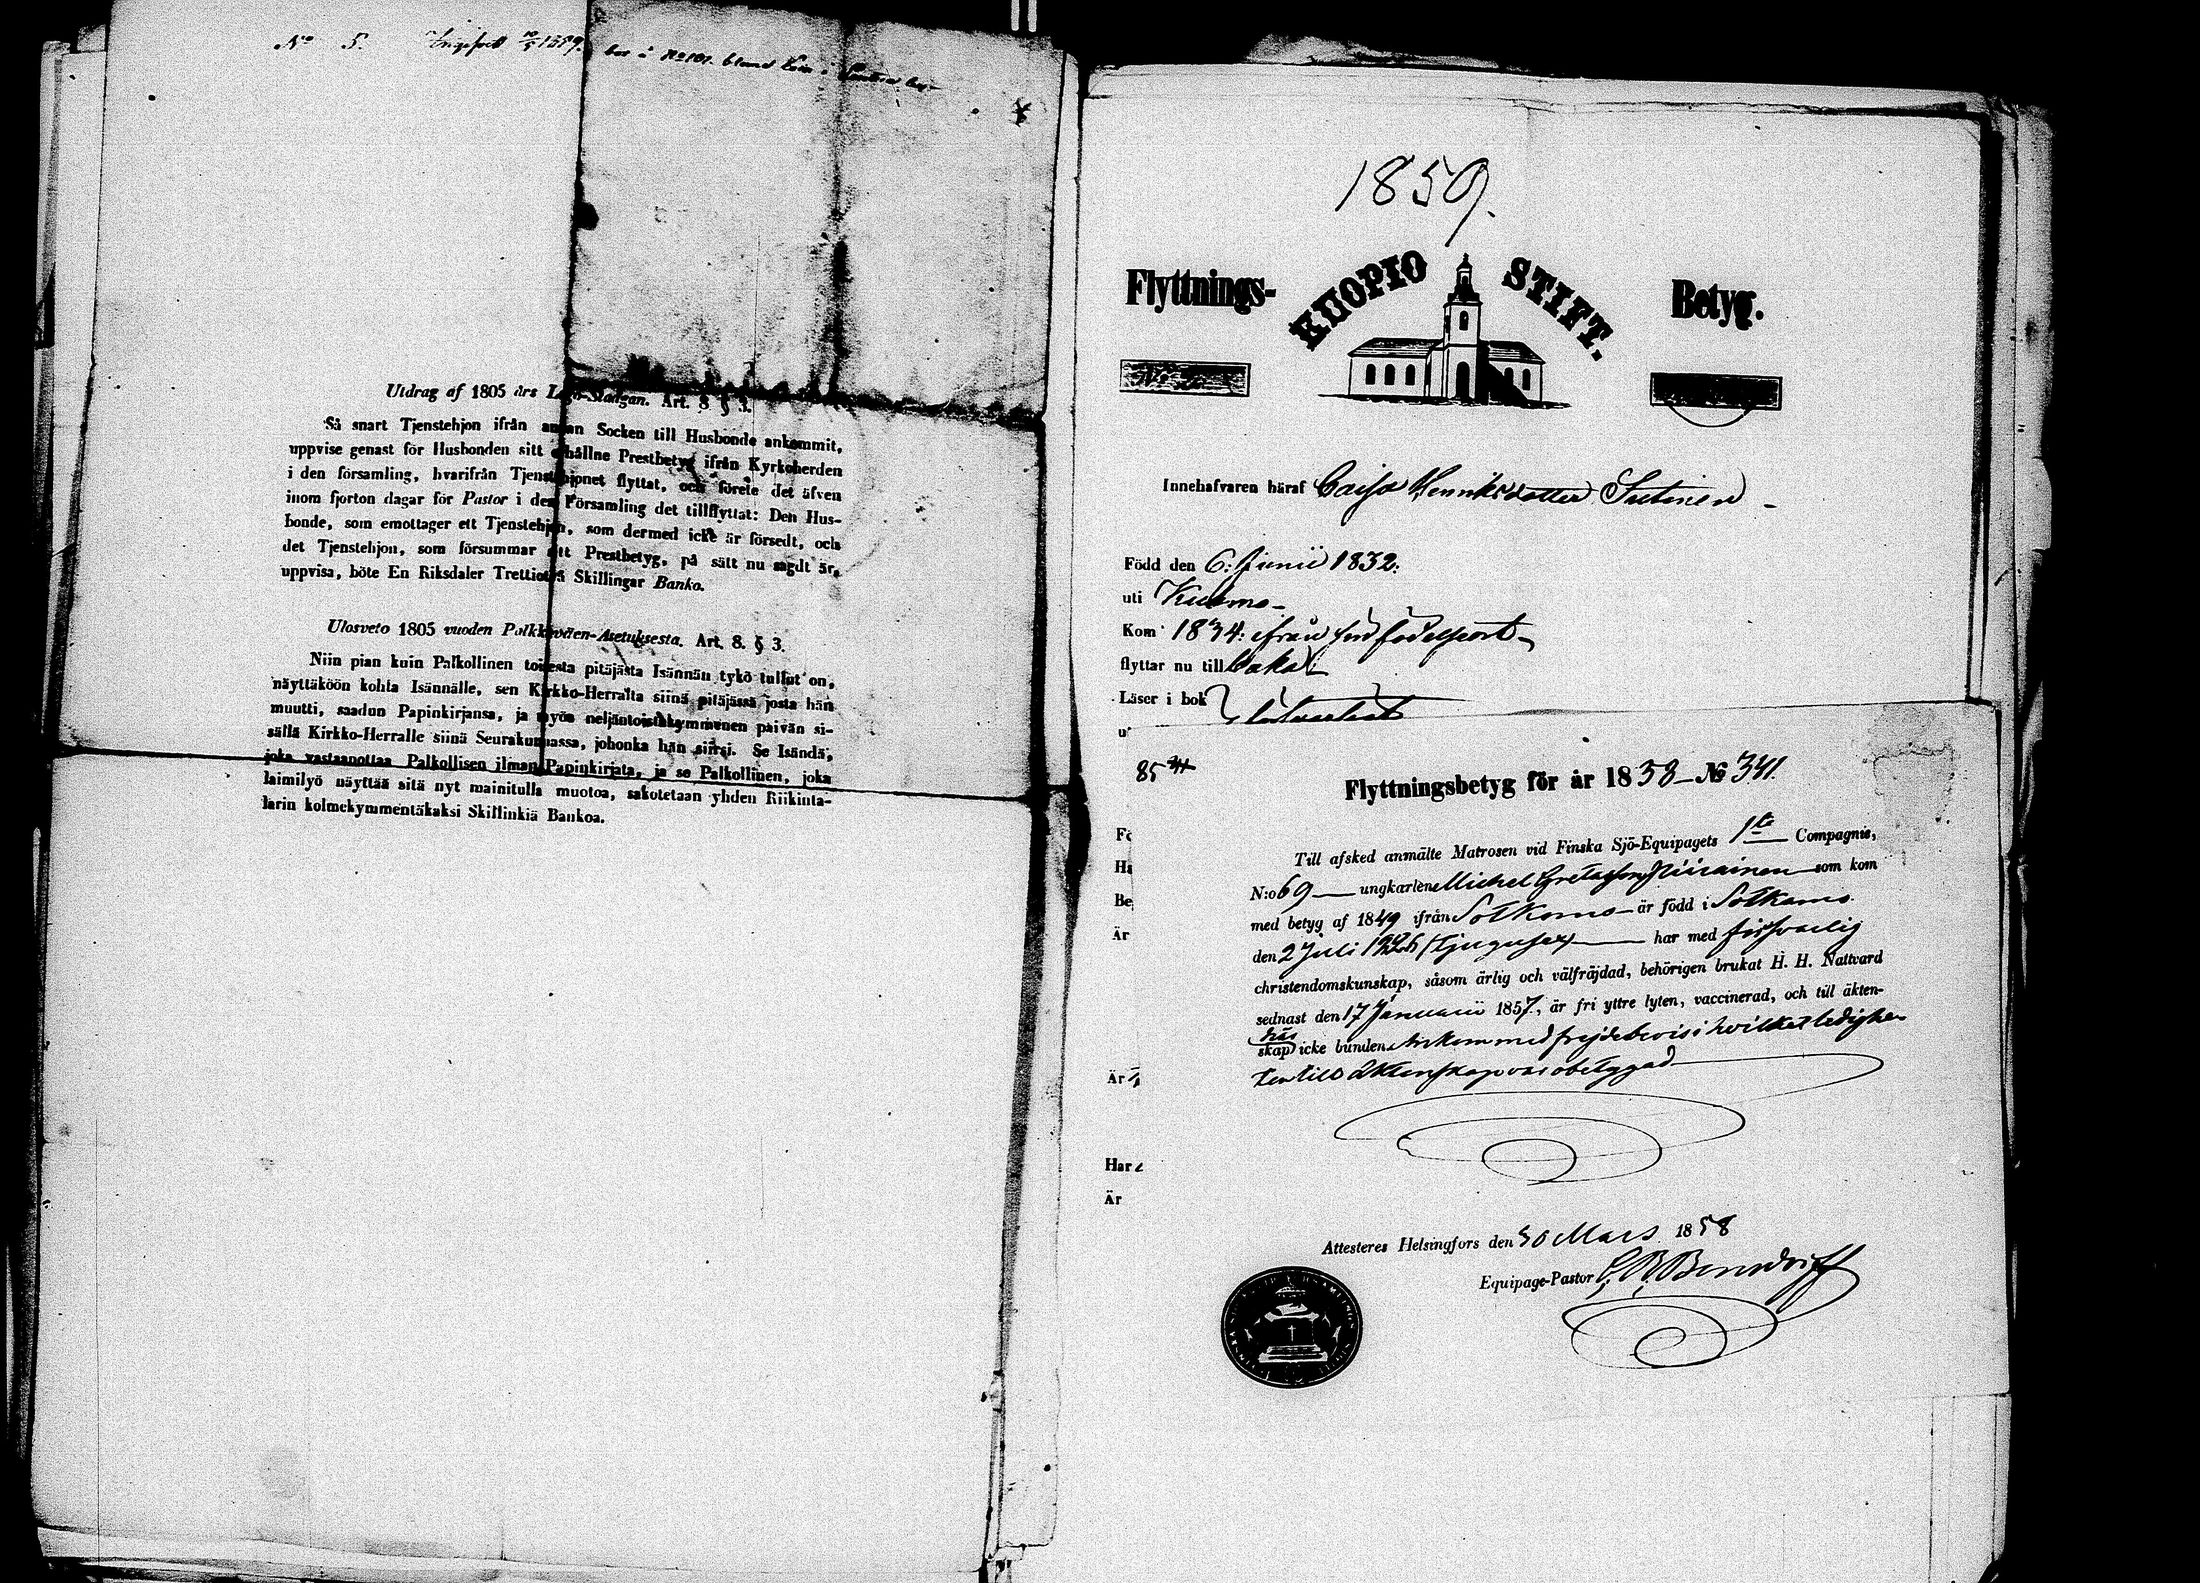 No 5.
Utdrag af 1805 års Lego-Stadgan. Art. 8 § 3.
Så snart Tjenstehjon ifrån annan Socken till Husbonde ankommit,
uppvise genast för Husbonden sitt erhållne Prestbetyg ifrån Kyrkoherden
i den församling, hvarifrån Tjenstehjonet flyttat, och förete det äfven
inom fjorton dagar för Pastor i den Församling det tillflyttat: Den Hus-
bonde, som emottager ett Tjenstehjon, som dermed icke är försedt, och
det Tjenstehjon, som försummar att Prestbetyg, på sätt nu sagdt är,
uppvisa, böte En Riksdaler Trettiotvå Skillingar Banko.
Ulosveto 1805 vuoden Palkkaväen-Asetuksesta. Art. 8. § 3.
Niin pian kuin Palkollinen toisesta pitäjästä Isännän tykö tullut on,
näyttäköön kohta Isännälle, sen Kirkko-Herralta siinä pitäjässä josta hän
muutti, saadun Papinkirjansa, ja myös neljäntoistakymmenen päivän si-
sällä Kirkko-Herralle siinä Seurakunnassa, johonka hän siirsi. Se Isändä,
joka vastaanottaa Palkollisen ilman Papinkirjata, ja se Palkollinen, joka
laimilyö näyttää sitä nyt mainitulla muotoa, sakotetaan yhden Riikinta-
larin kolmekymmentäkaksi Skillinkiä Bankoa.
1859.
Flyttnings- KUOPIO STIFT. Betyg.
Innehafvaren häraf Caisa Henriksdotter Sutinen
Född den 6: Junii 1832:
uti Kuhmo
Kom 1834: ifrån sin födelseort
flyttar nu till
Läser i bok
85
Flyttningsbetyg för år 1858 No 341.
Till afsked anmälte Matrosen vid Finska Sjö-Equipagets 1sta Compagnie,
N:o 69 ungkarlen Michel Gretasson Niirainen som kom
med betyg af 1849 ifrån Sotkamo är född i Sotkamo
den 2 Juli 1826 (tjugusex) har med försvarlig
christendomskunskap, såsom ärlig och välfräjdad, behörigen brukat H. H. Nattvard
sednast den 17 Januarii 1857, är fri yttre lyten, vaccinerad, och till äkten-
skap här icke bunden. Ankom med frejdebevis i hvilket ledighe-
ten till äktenskap var obetyggad
Har
Är
Attesteres Helsingfors den 30 Mars 1858
Equipage-Pastor